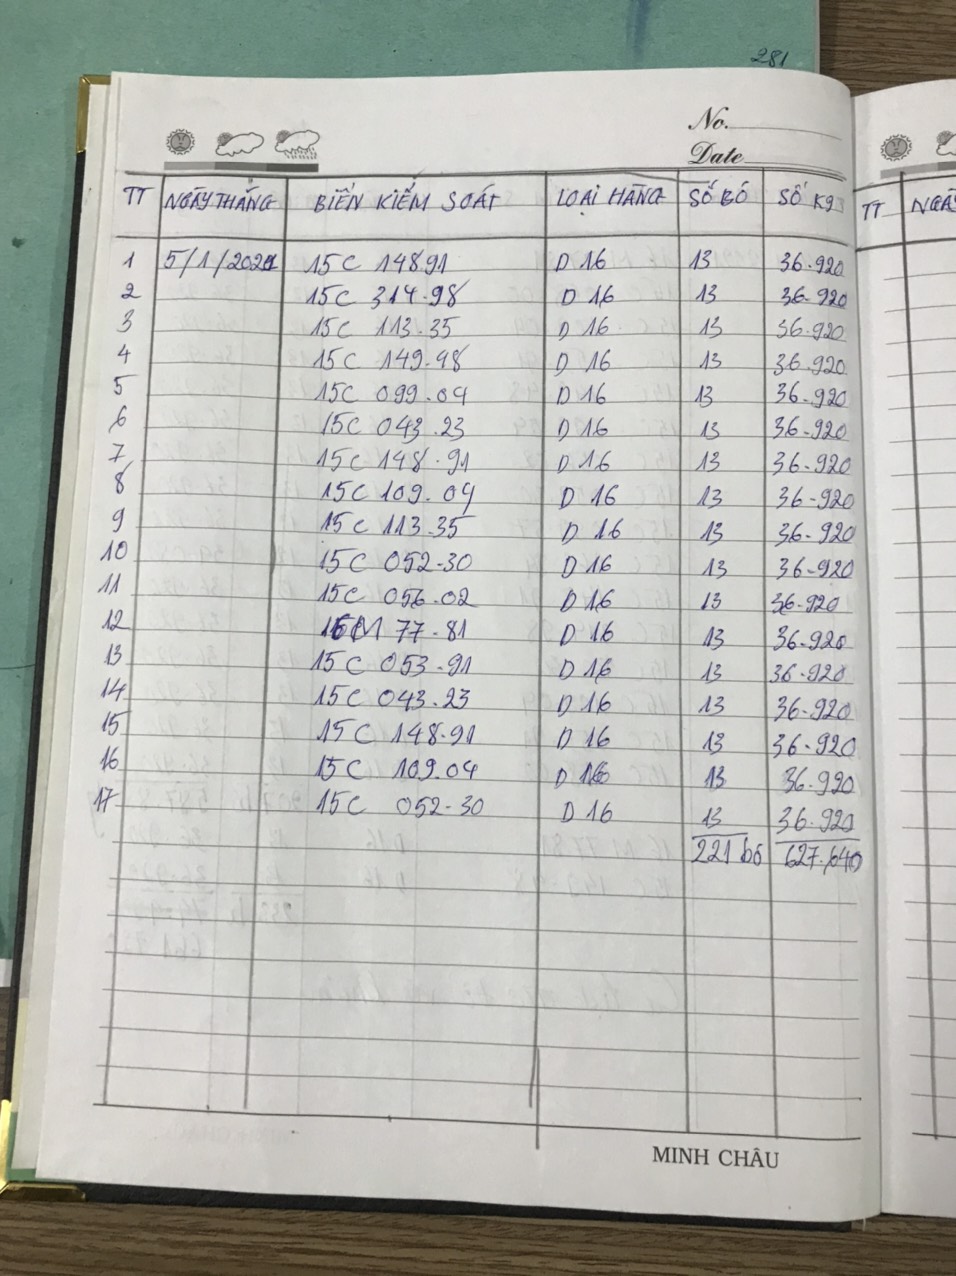 281
No.
Date
TT NGÀY THÁNG BIỂN KIỂM SOÁT LOẠI HÀNG SỐ BÓ SỐ Kg TT NGÀ
1 5/1/2021 15C 148.91 D 16 13 36.920
2 15C 314.98 D 16 13 36.920
3 15C 113.35 D 16 13 36.920
4 15C 149.48 D 16 13 36.920
5 15C 099.04 D 16 13 36.920
6 15C 043.23 D 16 13 36.920
7 15C 148.91 D 16 13 36.920
8 15C 109.04 D 16 13 36.920
9 15C 113.35 D 16 13 36.920
10 15C 052.30 D 16 13 36.920
11 15C 056.02 D 16 13 36.920
12 16M 77.81 D 16 13 36.920
13 15C 053.91 D 16 13 36.920
14 15C 043.23 D 16 13 36.920
15 15C 148.91 D 16 13 36.920
16 15C 109.04 D 16 13 36.920
17 15C 052.30 D 16 13 36.920
221 bó 627.640
MINH CHÂU